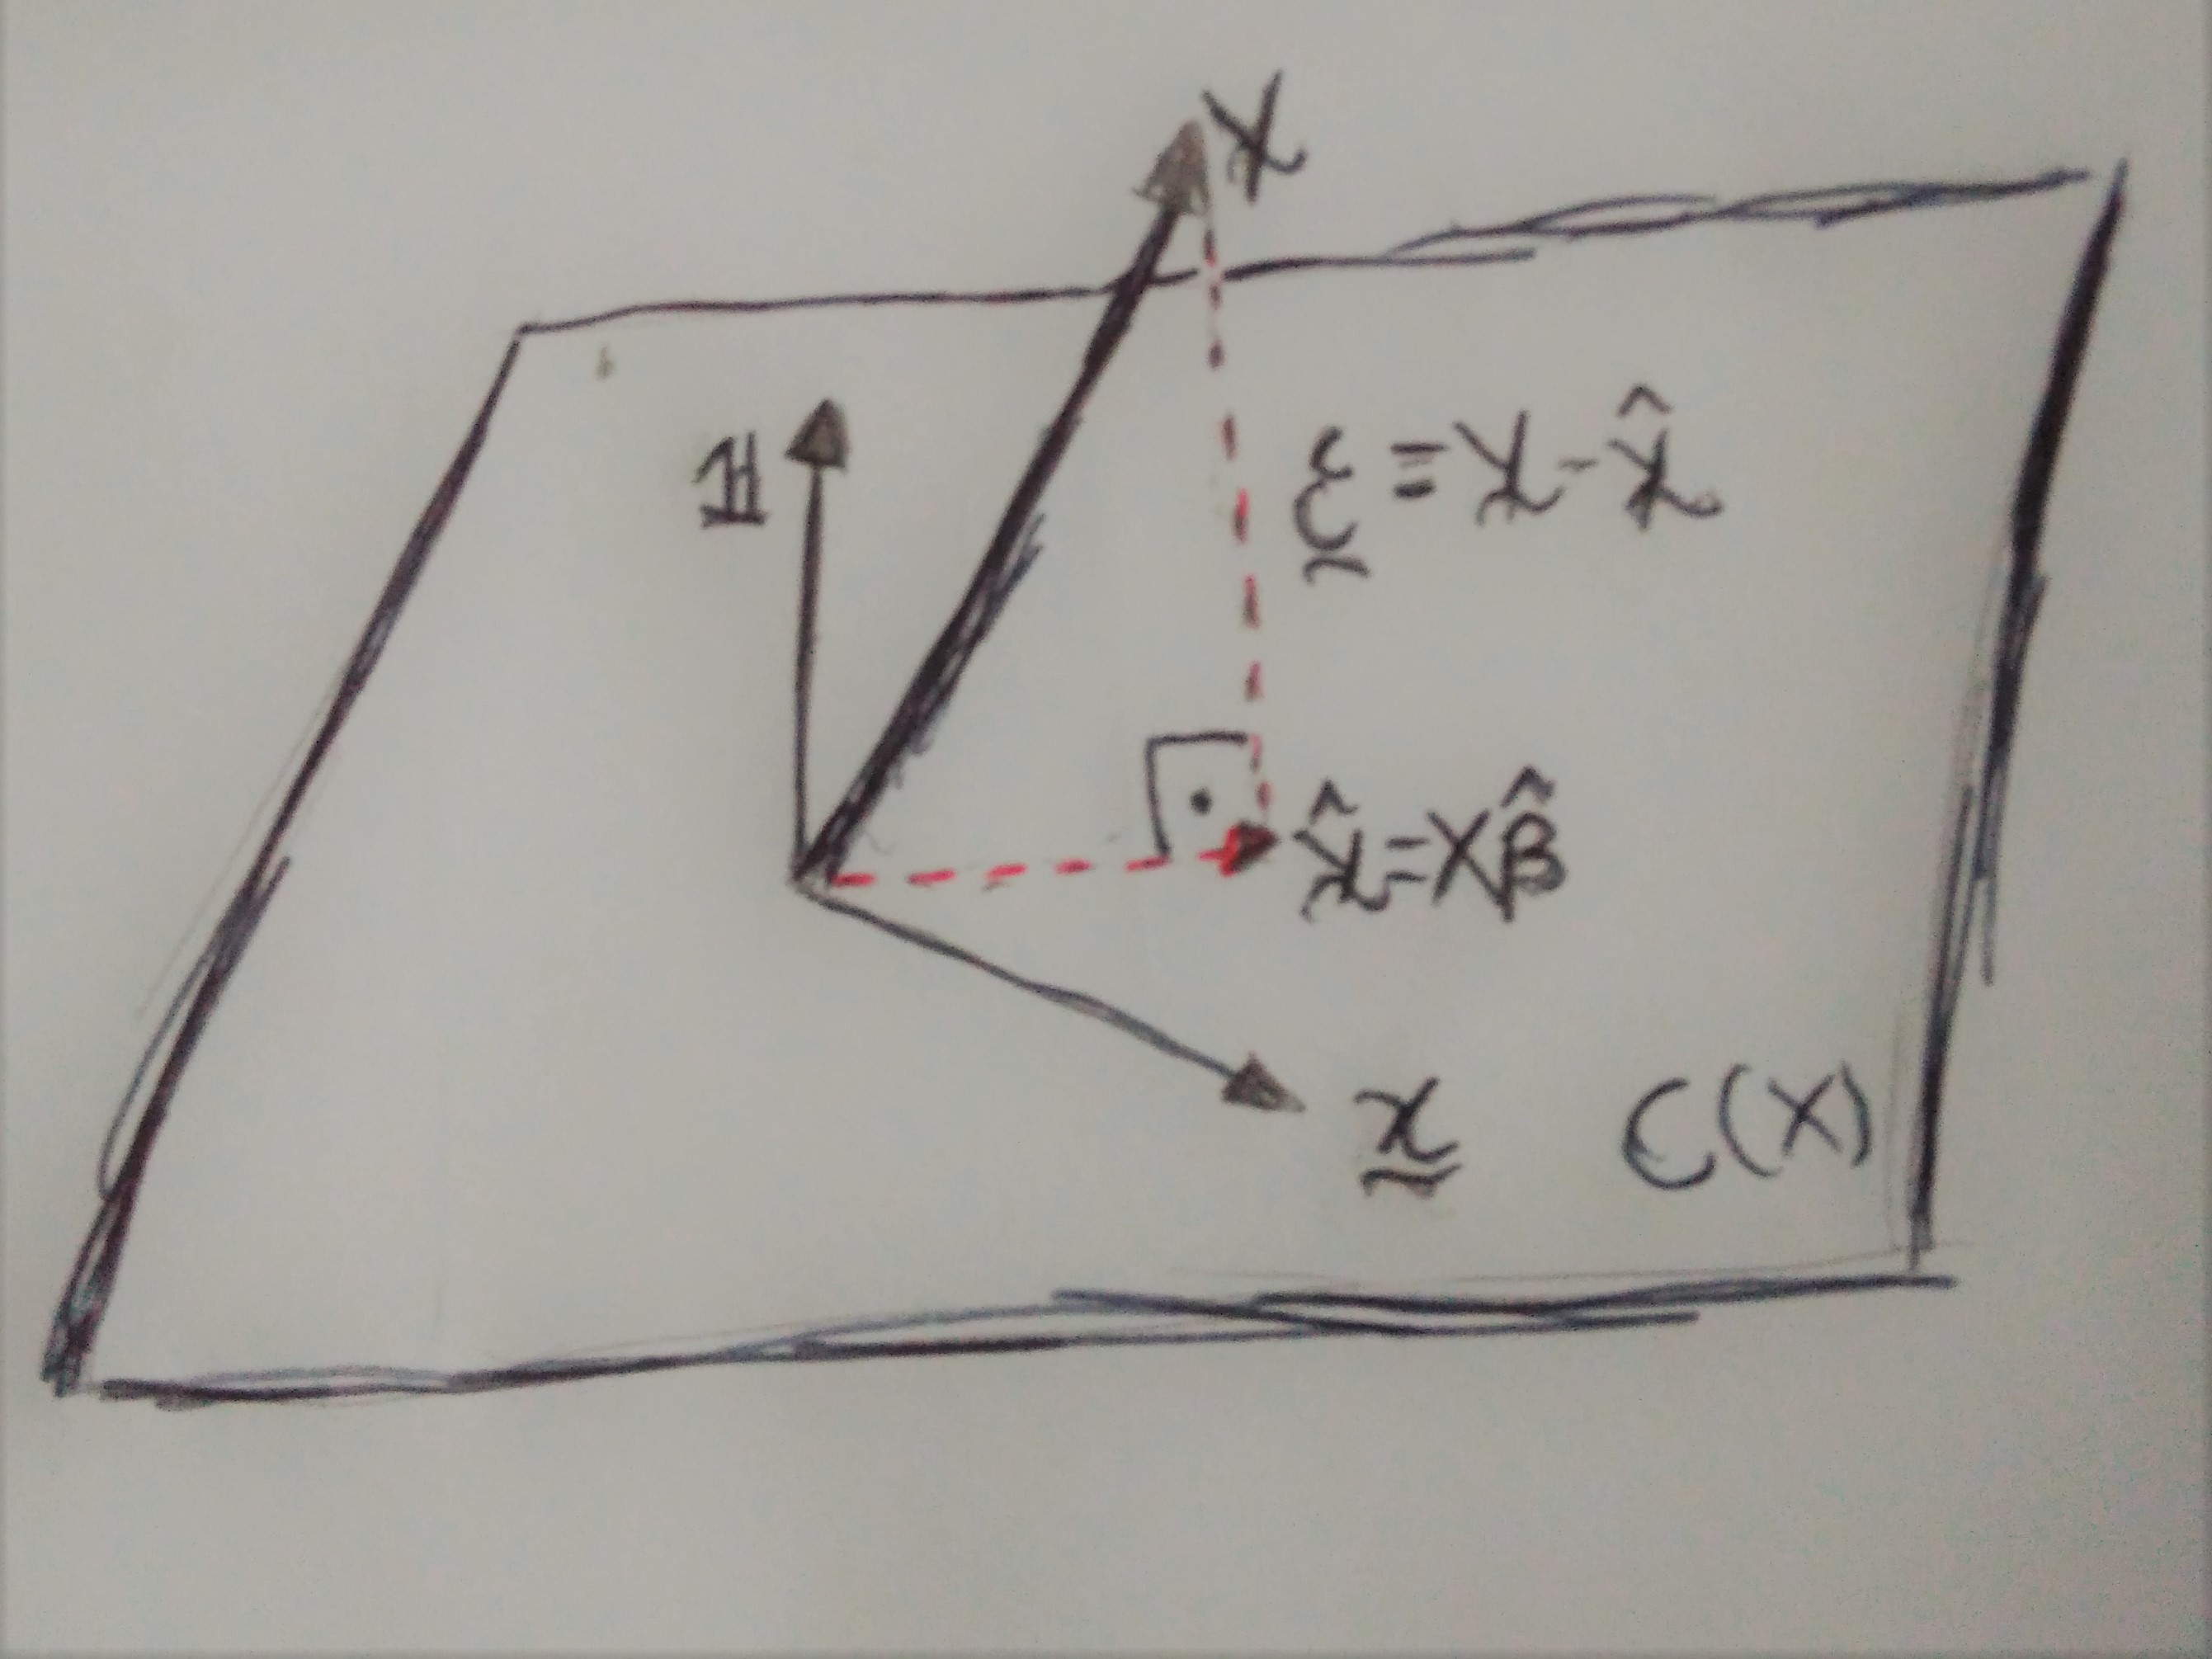 Y
1
ε = Y - Ŷ
Ŷ = Xβ̂
x
C(X)